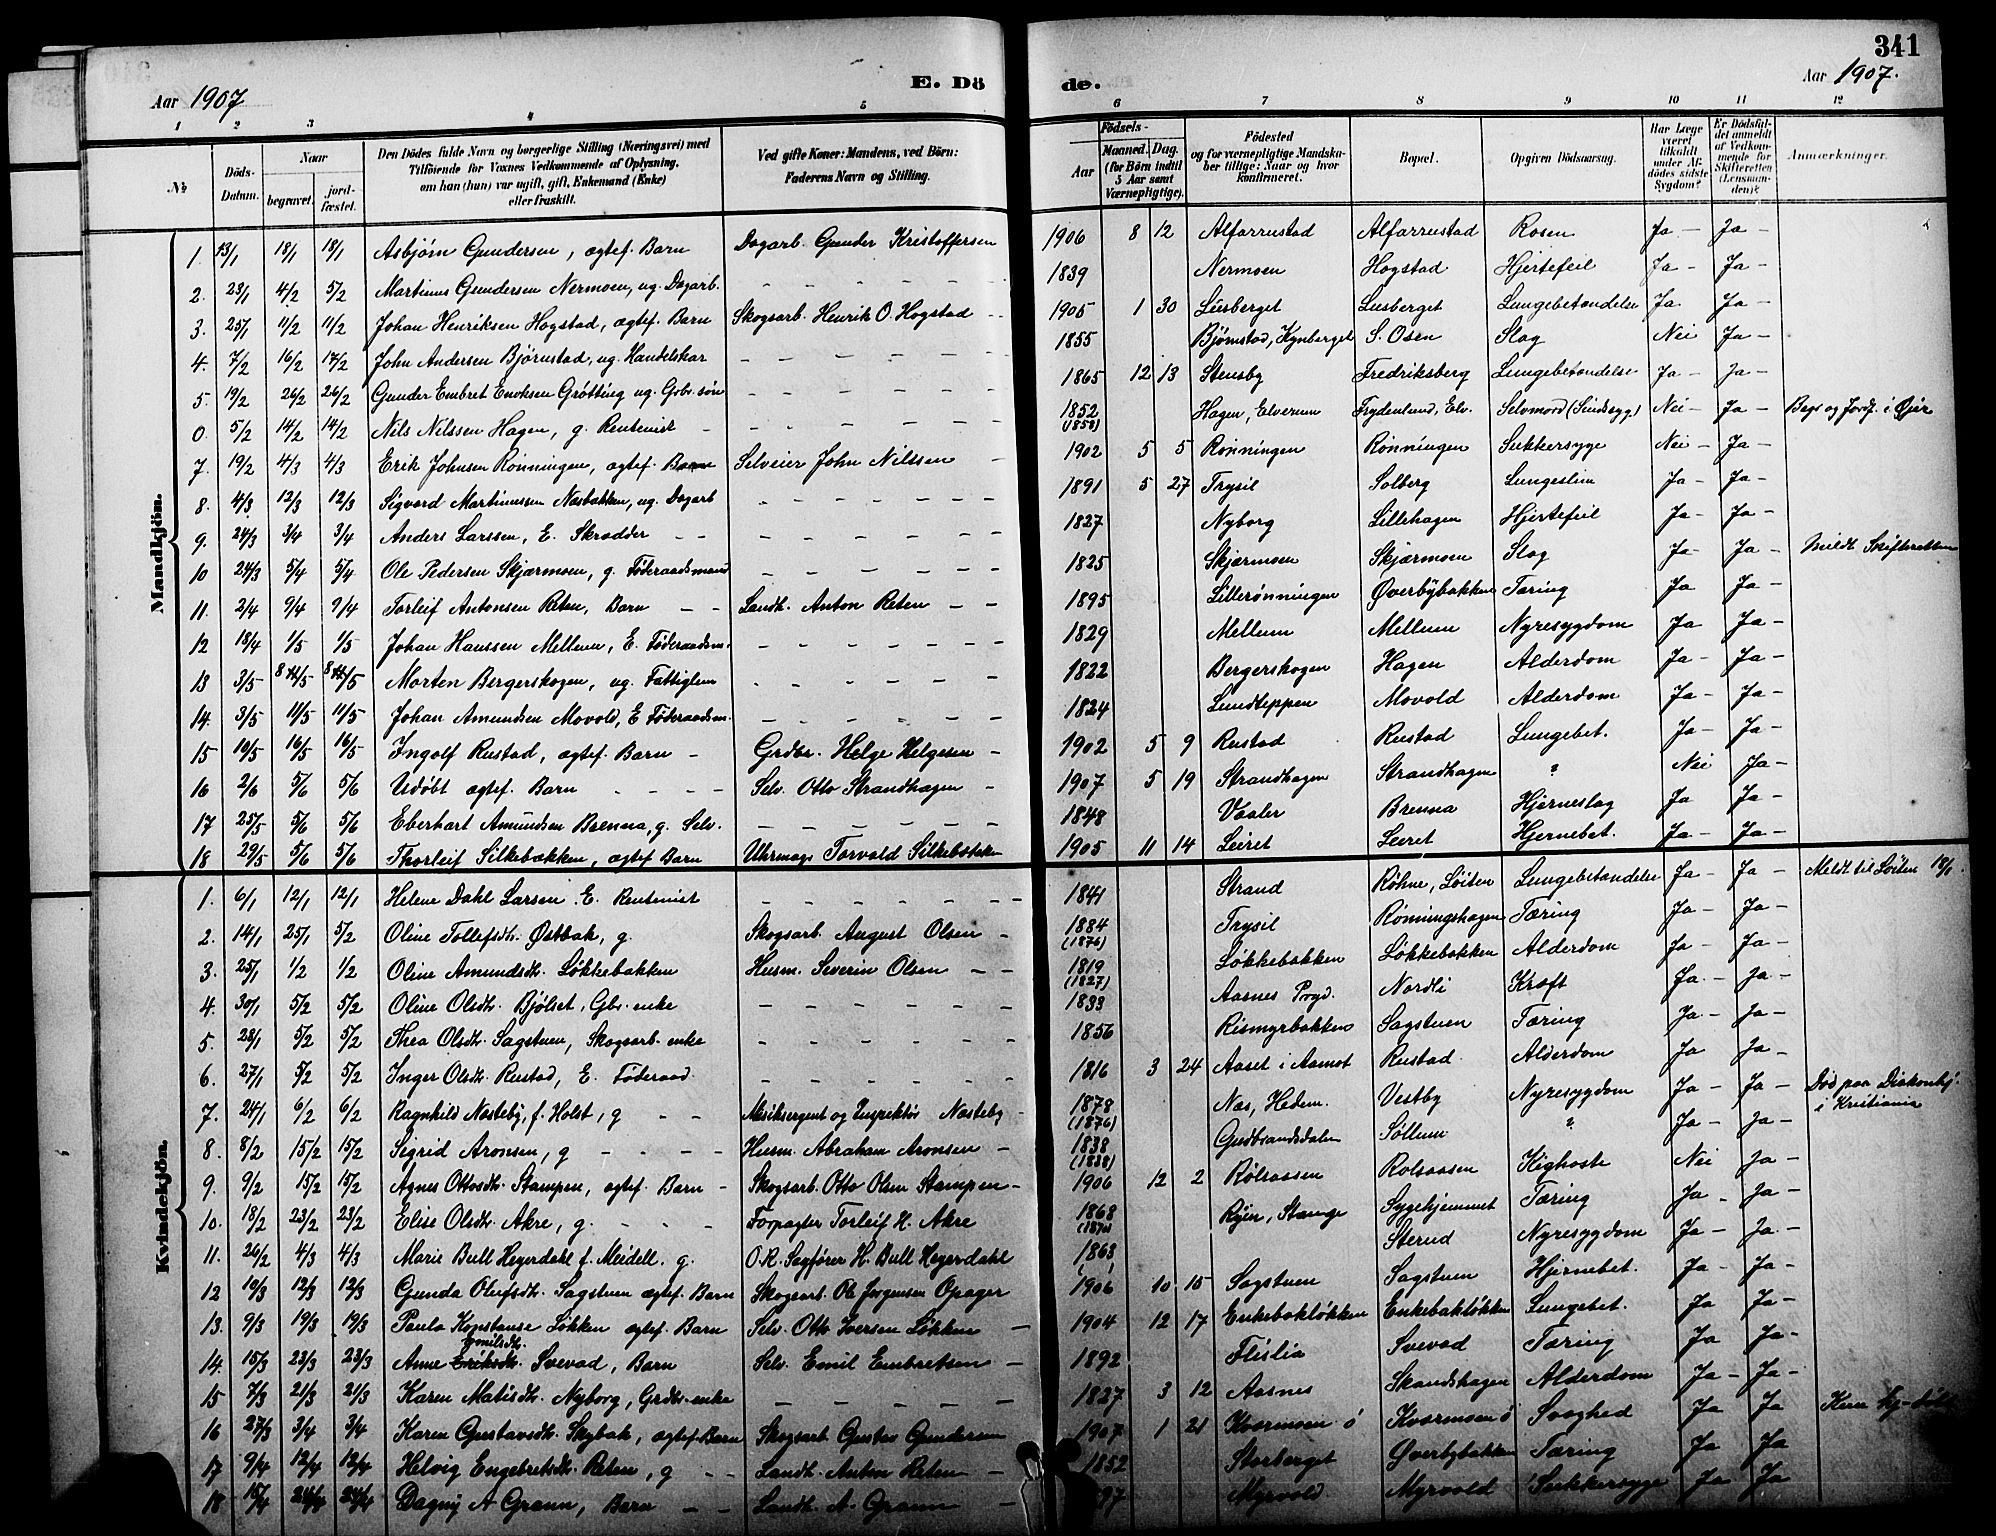 341
Aar 1907
E. Dö
de.
Aar 1907.
1 2 3 4 5
6 7 8 9 10 11 12
№
Döds-Datum.
Naar
begravet.
jord-fæstet.
Den Dödes fulde Navn og borgerlige Stilling (Næringsvei) med
Tilföiende for Voxnes Vedkommende af Oplysning,
om han (hun) var ugift, gift, Enkemand (Enke)
eller fraskilt.
Ved gifte Koner: Mandens, ved Börn:
Faderens Navn og Stilling.
Födsels-
Aar
Maaned. Dag.
(for Börn indtil
5 Aar samt
Værnepligtige).
Födested
og for værnepligtige Mandska-
ber tillige: Naar og hvor
konfirmeret.
Bopæl.
Opgiven Dödsaarsag.
Har Læge
været
tilkaldt
under Af-
dödes sidste
Sygdom?
Er Dödsfal-
det anmeldt
af Vedkom-
mende for
Skifteretten
(Lensman-
den)?
Anmærkninger.
Mandkjön.
1. 13/1 18/1 18/1 Asbjörn Gundersen, ægtef. Barn Dagarb. Gunder Kristoffersen 1906 8 12 Alfarrustad Alfarrustad Rosen Ja - Ja -
2. 23/1 4/2 5/2 Martinus Gundersen Nermoen, ug. Dagarb. 1839 Nermoen Hogstad Hjertefeil Ja - Ja -
3. 25/1 11/2 11/2 Johan Henriksen Hogstad, ægtef. Barn Skogsarb. Henrik O. Hogstad 1905 1 30 Lusberget Lusberget Lungebetændelse Ja Ja -
4. 7/2 16/2 17/2 John Andersen Björnstad, ug. Handelskar 1855 Björnstad, Kynberget S. Osen Slag Nei Ja -
5. 19/2 26/2 26/2 Gunder Embret Eriksen Grötting ug. Grbr. sön 1865 12 13 Stensby Fredriksberg Lungebetændelse Ja - Ja -
6. 5/2 14/2 14/2 Nils Nilssen Hagen, g. Rentenist 1852 (1858) Hagen, Elverum Frydenlund, Elv. Selvmord (Sindssyg) Nei - Ja - Begr. og Jordf. i Öier
7. 19/2 4/3 4/3 Erik Johnsen Rønningen, ægtef. Barn Selveier John Nilssen 1902 5 5 Rønningen Rønningen Sukkersyge Nei - Ja -
8. 4/3 12/3 12/3 Sigvard Martinussen Næsbakken, ug. Dagarb 1891 5 27 Trysil Solberg Lungeslim Ja - Ja -
9. 24/3 3/4 3/4 Anders Larssen, E. Skrædder 1827 Nyborg Lillehagen Hjertefeil Ja - Ja -
10 24/3 5/4 5/4 Ole Pedersen Skjærmoen, g. Føderaadsmand 1825 Skjærmoen Skjærmoen Slag Ja - Ja - Meldt Skifteretten
11. 2/4 9/4 9/4 Torleif Antonsen Reten, Barn Landh. Anton Reten 1895 Lillerønningen Øverbybakken Tæring Ja Ja -
12 18/4 1/5 1/5 Johan Hanssen Mellem, E. Føderaadsm. 1829 Mellum Mellum Nyresygdom Ja Ja -
13 3/5 8/5 8/5 Morten Bergerskogen, ug. Fattiglem 1822 Bergerskogen Hagen Alderdom Ja - Ja -
14. 3/5 11/5 11/5 Johan Amundsen Movold, E. Føderaadsm. 1824 Lundteppen Movold Alderdom Ja - Ja -
15 10/5 16/5 16/5 Ingolf Rustad, ægtef. Barn Grdbr. Helge Helgesen 1902 5 9 Rustad Rustad Lungebet. Ja - Ja -
16 2/6 5/6 5/6 Udøbt ægtef. Barn Selv. Otto Strandhagen 1907 5 19 Strandhagen Strandhagen ? Nei Ja -
17 25/5 5/6 5/6 Eberhart Amundsen Brenna, g. Selv. 1848 Vaaler Brenna Hjerneslag Ja Ja -
18 29/5 5/6 5/6 Thorleif Silkebækken, ægtef. Barn Uhrmag. Torvald Silkebækken 1905 11 14 Leiret Leiret Hjernebet. Ja - Ja -
Kvindekjön.
1. 6/1 12/1 12/1 Helene Dahl Larsen. E. Rentenist 1841 Strand Røhne, Løiten Lungebetændelse Ja - Ja - Meldt til Løiten 10/1.
2. 14/1 25/1 5/2 Oline Tollefsdtr. Østbak, g. Skogsarb. August Olsen 1884 (1876) Trysil Rønningshagen Tæring Ja - Ja -
3. 25/1 1/2 1/2 Oline Amundsdtr. Løkkebakken Husm. Severin Olsen 1819 (1827) Løkkebakken Løkkebakken Alderdom Ja - Ja -
4. 30/1 5/2 5/2 Oline Olsdtr. Bjølset, Gbr. enke 1833 Aasnes Prgd. Nordli Kræft Ja - Ja -
5. 28/1 5/2 5/2 Thea Olsdtr. Sagstuen, Skogsarb. enke 1856 Rismyrbakken Sagstuen Tæring Ja - Ja -
6. 27/1 5/2 5/2 Inger Olsdtr. Rustad, E. Føderaad. 1816 3 24 Aaset i Aamot Rustad Alderdom Ja Ja -
7. 24/1 6/2 6/2 Ragnhild Næsteby, f. Holst, g Musiksergent og Inspektør Næsteby 1878 (1876) Næs, Hedem. Vestby Nyresygdom Ja - Ja - Død paa Diakonhj. i Kristiania
8. 8/2 15/2 15/2 Sigrid Aronsen, g Husm. Abraham Aronsen 1838 (1838) Gudbrandsdalen Søllum ? Ja - Ja -
9. 9/2 15/2 15/2 Agnes Ottosdtr. Stampen, ægtef. Barn Skogsarb. Otto Olsen Stampen 1906 12 2 Rølsaasen Rolsaasen Kighoste Nei Ja -
10. 18/2 23/2 23/2 Elise Olsdtr. Akre, g. Forpagter Torleif H. Akre 1868 (1870) Ryen, Stange Sygehjemmet Tæring Ja - Ja -
11. 26/2 4/3 4/3 Marie Bull Heyerdahl f. Meidell. g. O.R. Sagfører H. Bull Heyerdahl 1863 Sterud Nyresygdom Ja - Ja -
12 10/3 12/3 12/3 Gunda Olufsdtr. Sagstuen ægtef. Barn Skogsarb. Ole Jørgensen Opager 1906 10 15 Sagstuen Sagstuen Hjernebet. Ja - Ja -
13. 9/3 19/3 19/3 Paula Konstanse Løkken ægtef. Barn Selv. Otto Iversen Løkken 1904 12 17 Enkebakløkken Enkebakløkken Lungebet. Ja Ja -
14. 15/3 23/3 23/3 Anne Eriksdtr. Emilsdtr. Svevad, Barn Selv. Emil Embretsen 1892 Flislia Svevad Tæring Ja Ja -
15 7/3 21/3 21/3 Karen Matisdtr. Nyborg, Grdbr. enke 1827 3 12 Aasnes Skandshagen Alderdom Ja - Ja -
16 27/3 3/4 3/4 Karen Gustavsdtr. Skybak, ægtef. Barn Skogsarb. Gustav Gundersen 1907 1 21 Kværnmoen ö Kværnmoen ö Svaghed Ja Ja Kun hj-døbt
17 9/4 12/4 12/4 Helvig Engebretsdtr. Reten, g Landh. Anton Reten 1852 Storberget Øverbybakken Tæring Ja Ja
18 15/4 24/4 24/4 Dagny A Grann, Barn Landh. A. Grann 97 Myrvold Myrvold Sukkersyge Ja Ja